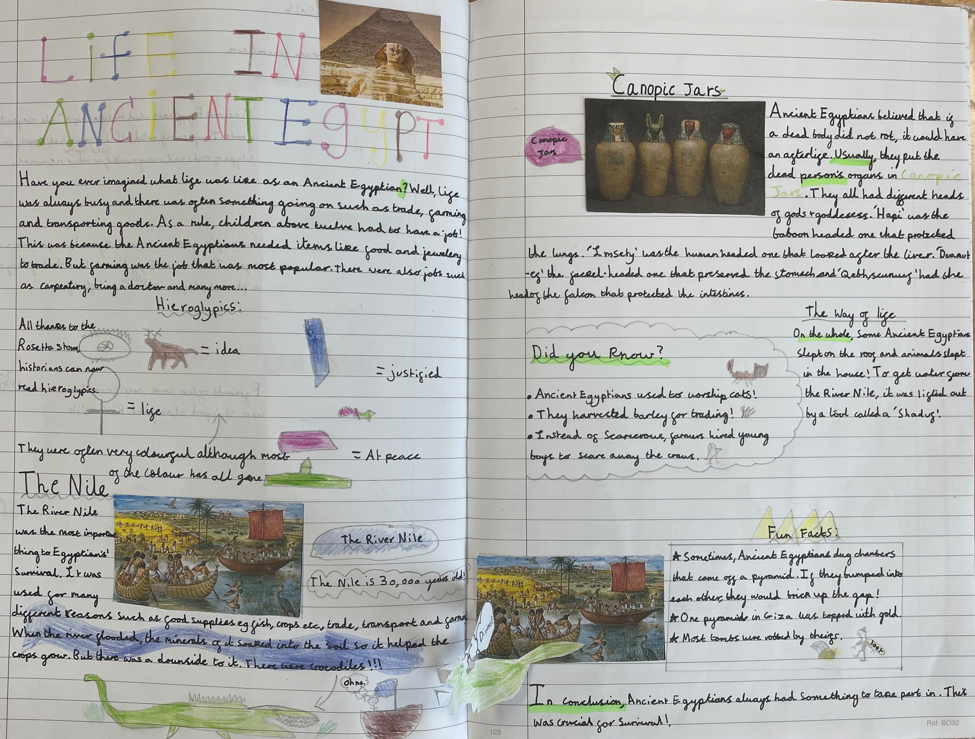 LifE IN
ANCiENT EgyPT
Have you ever imagined what life was like as an Ancient Egyptian? Well, life
was always busy and there was often something going on such as trade, farming
and transporting goods. As a rule, children above twelve had to have a job!
This was because the Ancient Egyptians needed items like food and jewelery
to trade. But farming was the job that was most popular. There were also jobs such
as carpentary, being a doctor and many more...
Hieroglypics:
All thanks to the
Rosetta stone,
historians can now
read hieroglypics.
= idea
= life
= justified
= At peace
They were often very colourful although most
of the colour has all gone
The Nile
The River Nile
was the most important
thing to Egyptian's'
Survival. It was
used for many
different reasons such as food supplies eg fish, crops etc, trade, transport and farming
When the river flooded, the minerals of it soaked into the soil so it helped the
crops grow. But there was a downside to it. There were crocodiles!!!
The River Nile
The Nile is 30,000 years old!
ohno.
123
Canopic Jars
Canopic
Jars
Ancient Egyptians believed that if
a dead body did not rot, it would have
an afterlife. Usually, they put the
dead person's organs in Canopic
Jars. They all had different heads
of gods + goddesess. 'Hapi' was the
baboon headed one that protected
the lungs. 'Imsety' was the human headed one that looked after the liver. 'Duamut
-ef' the jackel-headed one that preserved the stomach and 'Qebhsenuuf' had the
head of the falcon that protected the intestines.
The way of life
On the whole, some Ancient Egyptians
slept on the roof and animals slept
in the house! To get water from
the River Nile, it was lifted out
by a tool called a 'Shaduf'!
Did you know?
• Ancient Egyptians used to worship cats!
• They harvested barley for trading!
• Instead of Scarecrows, farmers hired young
boys to scare away the crows.
Fun Facts!
★ Sometimes, Ancient Egyptians dug chambers
that came off a pyramid. If they bumped into
each other, they would brick up the gap!
★ One pyramid in Griza was topped with gold.
★ Most tombs were robbed by theifs.
loot
In conclusion, Ancient Egyptians always had something to take part in. This
was crucial for Survival!
Ref: BD32